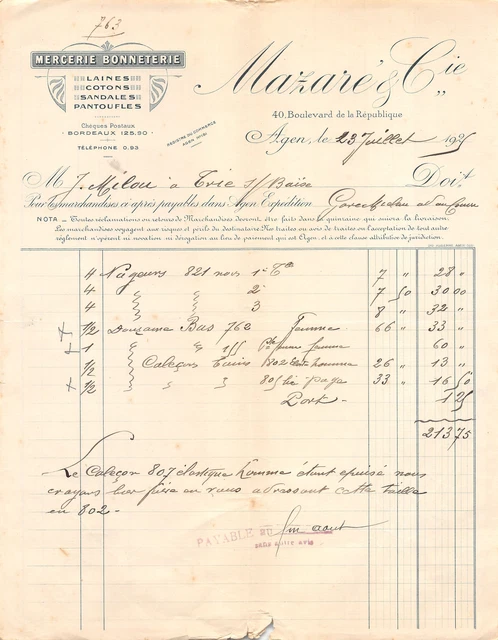 763
MERCERIE BONNETERIE
LAINES
COTONS
SANDALES
PANTOUFLES
Chèques Postaux
BORDEAUX 125.90
TÉLÉPHONE 0.93
REGISTRE DU COMMERCE
AGEN
Mazaré & Cie
40, Boulevard de la République
Agen, le 23 Juillet 1925
M J. Milou à Trie s/ Baïse Doit
Pour les marchandises ci-après payables dans Agen Expédition Gare
NOTA _ Toutes réclamations ou retours de Marchandises devront être faits dans la quinzaine qui suivra la livraison.
Les marchandises voyagent aux risques et périls du destinataire. Nos traites ou avis de traites ou l'acceptation de tout autre
règlement n'opèrent ni novation ni dérogation au lieu de paiement qui est Agen, et à cette clause attributive de juridiction.
4 Nageurs 821 noirs 1e 7 " 28 "
4 " " 2 7 50 30 00
4 " " 3 8 " 32 "
x 1/2 Douzaine Bas 762 Femme 66 " 33 "
1 " " femme 60 "
1/2 " Caleçons 802 homme 26 " 13 "
x 1/2 " " 805 33 " 16 50
Port - 1 25
213 75
Le Caleçon 807 élastique homme étant épuisé nous
croyons bien faire en vous adressant cette taille
en 802 -
PAYABLE AU fin aout
sans autre avis